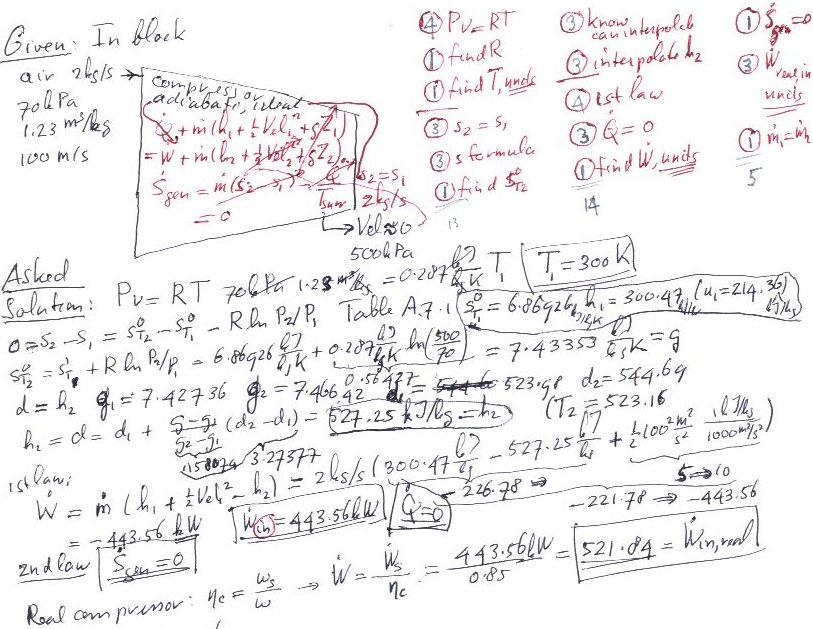 Given: In block
air 2kg/s →
70kPa
1.23 m³/kg
100 m/s
compressor
adiabatic, ideal
Q̇ + ṁ(h₁ + ½Vel₁² + gZ₁)
= Ẇ + ṁ(h₂ + ½Vel₂² + gZ₂)
Ṡgen = ṁ(s₂ - s₁) - Q̇/Tsurr
= 0
s₂ = s₁
2kg/s
→ Vel≈0
500kPa
④ Pv = RT
① find R
① find T, units
③ s₂ = s₁
③ s formula
① find s°T2
13
③ know can interpolate
③ interpolate h₂
④ 1st law
③ Q̇ = 0
① find Ẇ, units
14
① Ṡgen = 0
③ Ẇ real in units
① ṁ₁ = ṁ₂
5
Asked
Solution: Pv = RT 70kPa 1.23 m³/kg = 0.287 kJ/kg K T₁ T₁ = 300K
0 = s₂ - s₁ = s°T2 - s°T1 - R ln P₂/P₁ Table A.7.1 s°T1 = 6.86926 kJ/kg K h₁ = 300.47 kJ/kg (u₁ = 214.36) kJ/kg
s°T2 = s°T1 + R ln P₂/P₁ = 6.86926 kJ/kg K + 0.287 kJ/kg K ln(500/70) = 7.43353 kJ/kg K = g
0.56427
d = h₂ g₁ = 7.42736 g₂ = 7.46642 d₁ = 523.98 d₂ = 544.69
h₂ = d = d₁ + (g - g₁)/(g₂ - g₁) (d₂ - d₁) = 527.25 kJ/kg = h₂ (T₂ = 523.16
.158079 3.27377
1st law:
Ẇ = ṁ (h₁ + ½Vel₁² - h₂) = 2kg/s (300.47 kJ/kg - 527.25 kJ/kg + ½ 100² m²/s² 1kJ/kg / 1000m²/s²)
-226.78 ⇒ 5 ⇒ 10
= -443.56 kW Ẇin = 443.56kW Q̇=0 -221.78 ⇒ -443.56
2nd law Ṡgen = 0
Real compressor: ηc = ws/w → Ẇ = Ẇs/ηc = 443.56kW/0.85 = 521.84 = Ẇin,real